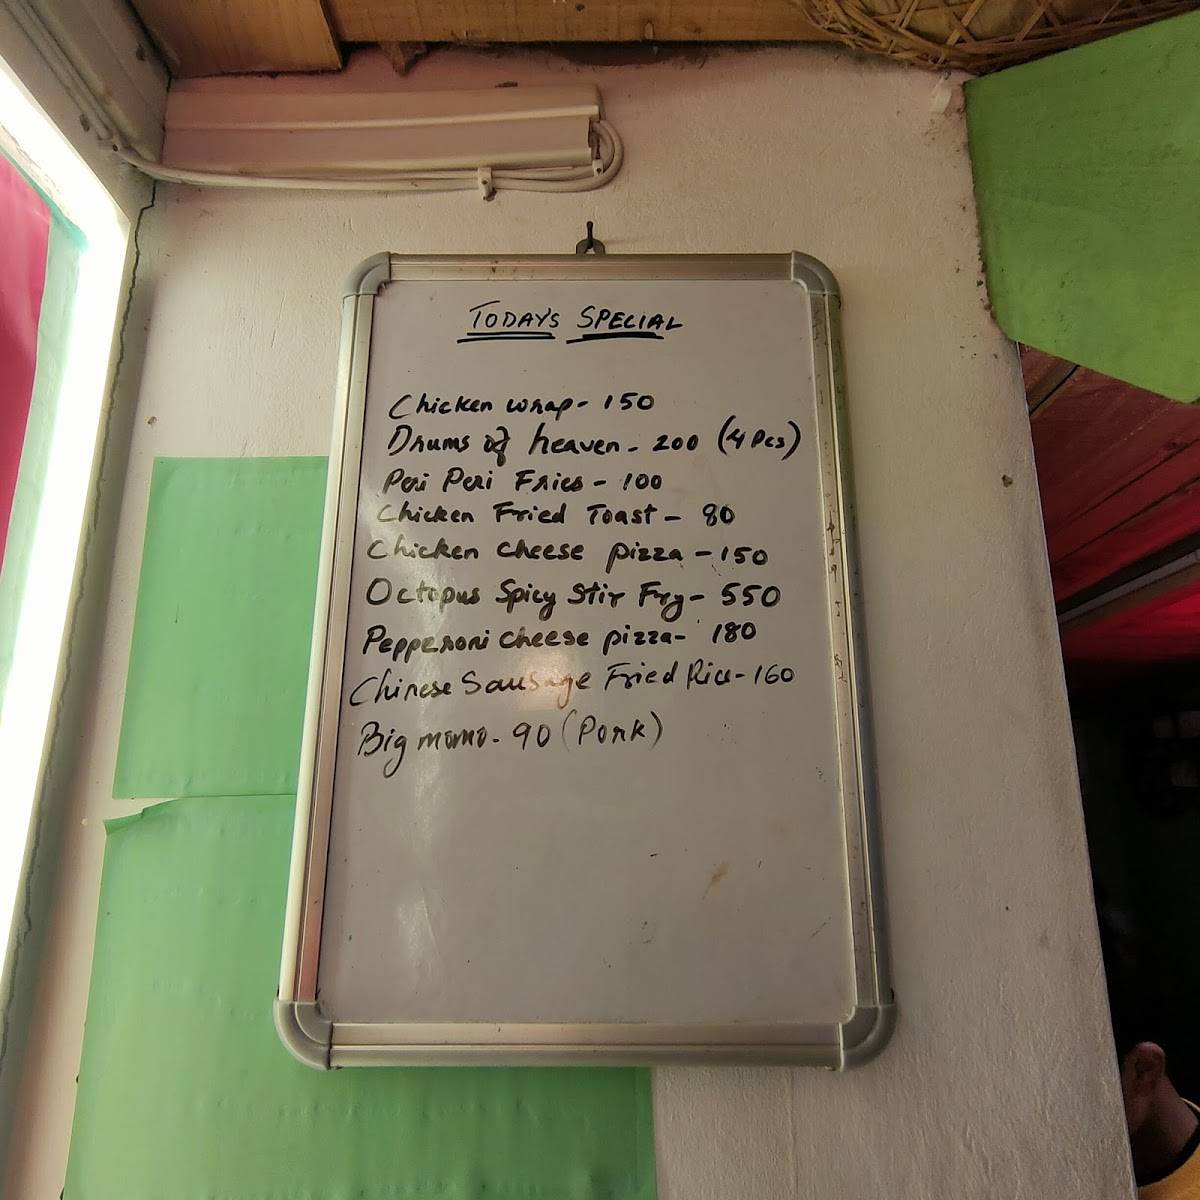 TODAY'S SPECIAL
Chicken wrap - 150
Drums of heaven - 200 (4 Pcs)
Peri Peri Fries - 100
Chicken Fried Toast - 80
Chicken cheese pizza - 150
Octopus Spicy Stir Fry - 550
Pepperoni cheese pizza - 180
Chinese Sausage Fried Rice - 160
Big momo - 90 (Pork)